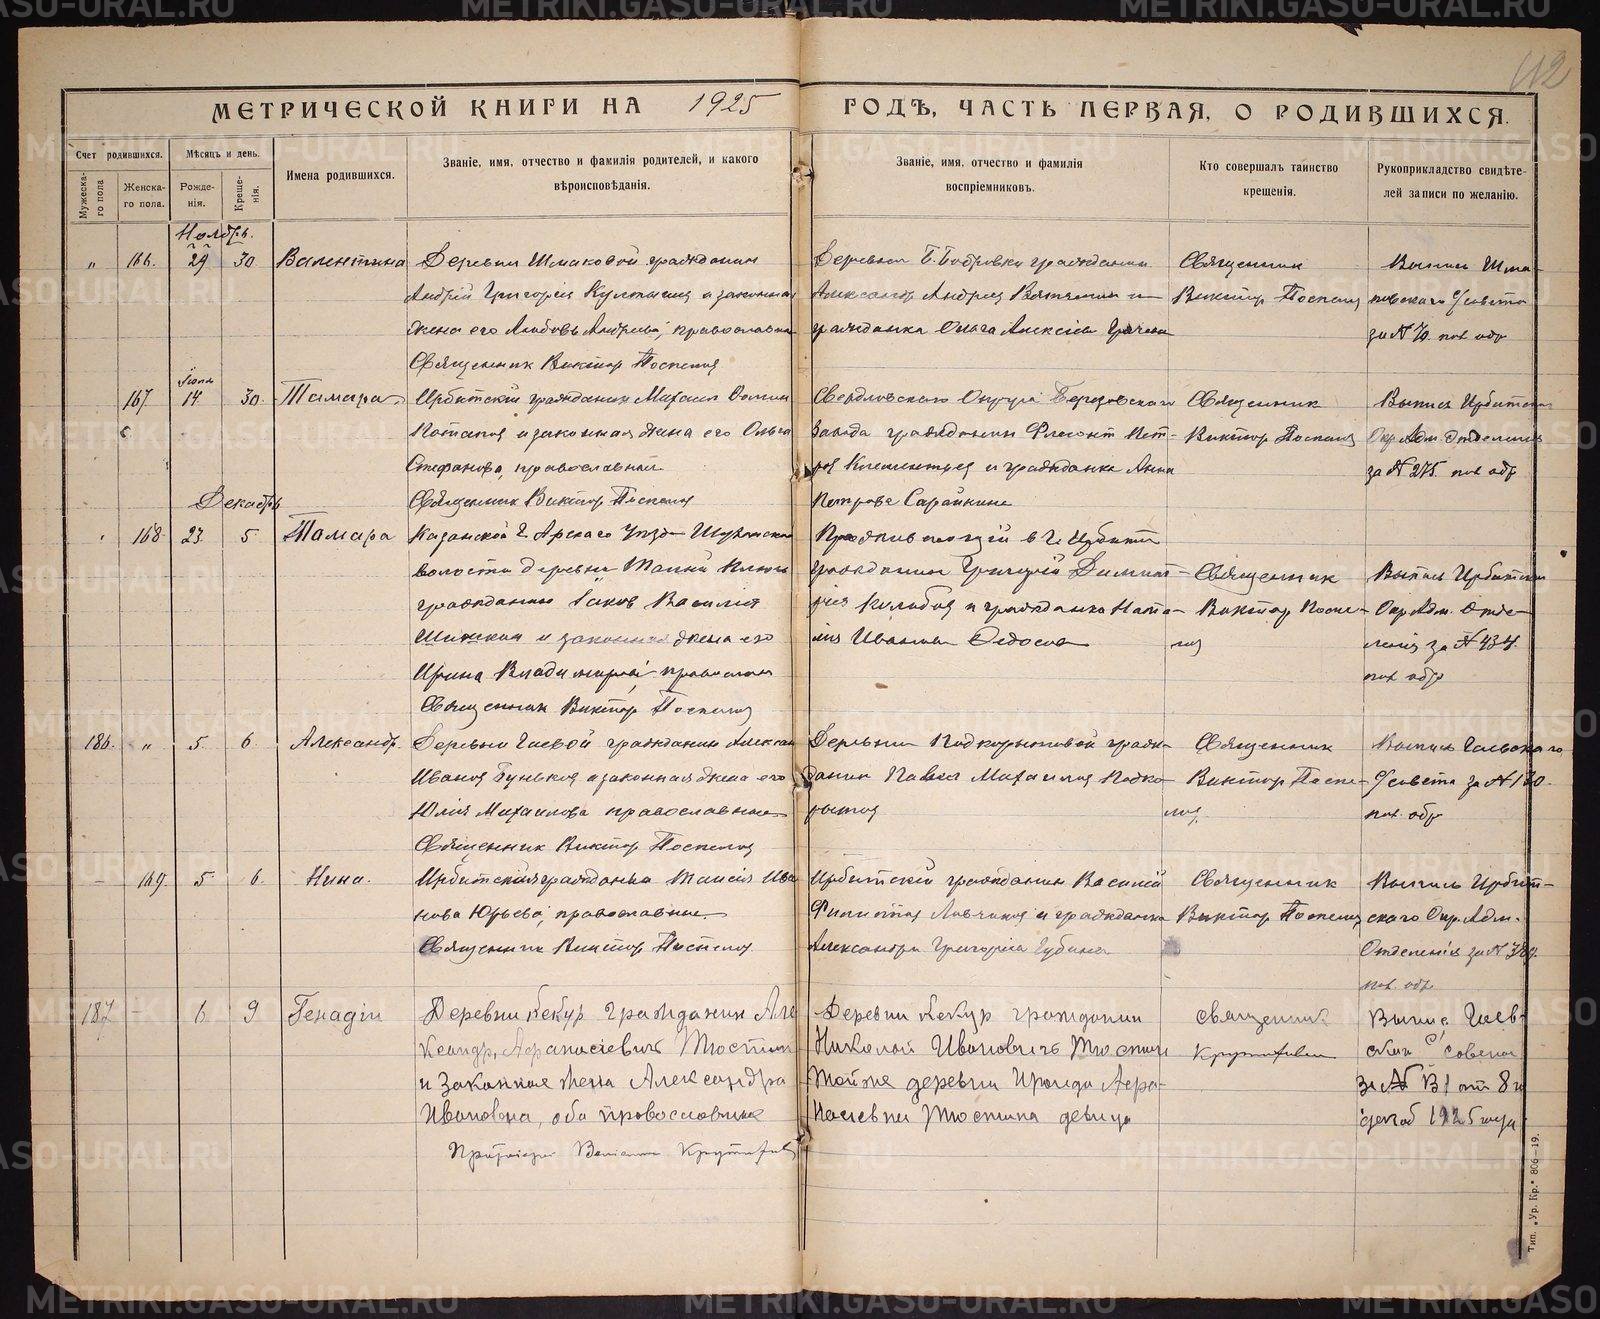 112
МЕТРИЧЕСКОЙ КНИГИ НА 1925 ГОДЪ, ЧАСТЬ ПЕРВАЯ, О РОДИВШИХСЯ.
Счет родившихся.
Мужеска-
го пола
Женска-
го пола.
Мѣсяцъ и день.
Рожде-
нія.
Креще-
нія.
Имена родившихся.
Званіе, имя, отчество и фамилія родителей, и какого
вѣроисповѣданія.
Званіе, имя, отчество и фамилія
воспріемниковъ.
Кто совершалъ таинство
крещенія.
Рукоприкладство свидѣте-
лей записи по желанію.
Ноябрь.
" 166. 29 30 Валентина
Деревни Шмаковой гражданин
Андрей Григорьев и законная
жена его Любовь Андреева, православные
Священник Виктор Поспелов
Деревни Б. Бобровки гражданин
Александр Андреев и
гражданка Ольга Алексеева
Священник
Виктор Поспелов
Выпись Шма-
ковского с/совета
за № 70. пов. обр
Июль
167. 14. 30. Тамара
Ирбитский гражданин Михаил
Потапов и законная жена его Ольга
Стефанова, православный
Священник Виктор Поспелов
Свердловского Округа Березовского
завода гражданин Флегонт Пет-
ров Клементьев и гражданка Анна
Петрова Сарапкина
Священник
Виктор Поспелов
Выпись Ирбитского
Окр. Адм. Отделения
за № 275. пов. обр
Декабрь
168. 23. 5. Тамара
Казанской г. Арскаго Уезда
волости деревни Ключ
гражданин Іаков Васильев
и законная жена его
Ирина Владимирова православные
Священник Виктор Поспелов
Проживающий в г. Ирбите
гражданин Григорий Димит-
риев Колобов и гражданка Ната-
лия Иванова Федосова
Священник
Виктор Поспе-
лов
Выпись Ирбитского
Окр. Адм. Отде-
ления за № 434.
пов. обр
186. " 5. 6. Александр.
Деревни Гаевой гражданин Александр
Иванов Буньков и законная жена его
Юлия Михаилова православные
Священник Виктор Поспелов
Деревни Подкорытовой граж-
данин Павел Михаилов Подко-
рытов
Священник
Виктор Поспе-
лов.
Выпись Гаевского
с/совета за № 130.
пов. обр
169. 5. 6. Нина.
Ирбитская гражданка Таисия Ива-
нова Юрьева, православные.
Священник Виктор Поспелов
Ирбитский гражданин Василий
Филиппов Ловчиков и гражданка
Александра Григориева Губина
Священник
Виктор Поспелов
Выпись Ирбит-
скаго Окр. Адм.
Отделения за №
пов. обр
187. — 6 9 Генадіи
Деревни Кекур гражданин Але
ксандр, Афанасиевич Тюстин
и законная жена Александра
Ивановна, оба православные
Протоіерей
Деревни Кекур гражданин
Николай Ивановичъ Тюстин
той же деревни Ираида Афа-
насиевна Тюстина девица
Священник
Выпись Гаев-
ской с/ совета
за № 131 от 8го
декаб 1925 года
Тип. „Ур. Кр." 806—19.
METRIKI.GASO-URAL.RU